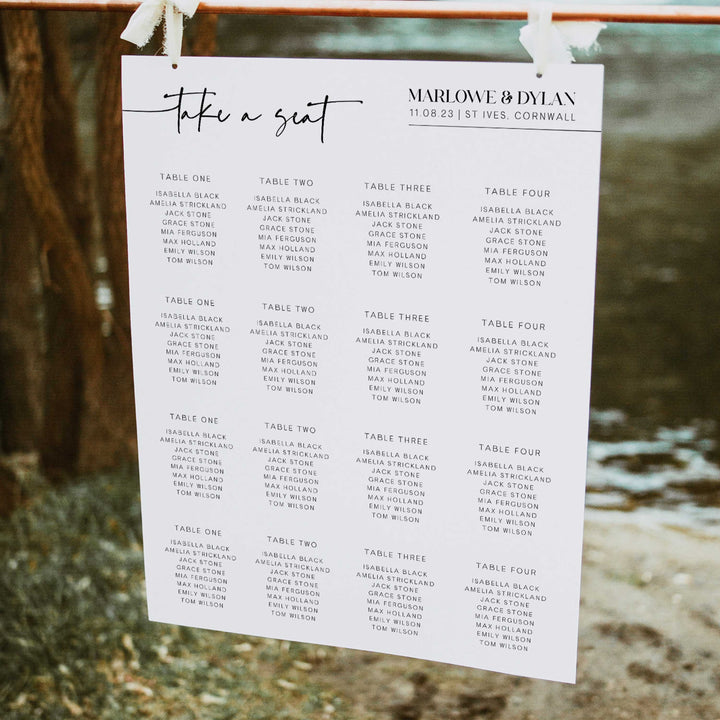 take a seat
MARLOWE & DYLAN
11.08.23 | ST IVES, CORNWALL
TABLE ONE
ISABELLA BLACK
AMELIA STRICKLAND
JACK STONE
GRACE STONE
MIA FERGUSON
MAX HOLLAND
EMILY WILSON
TOM WILSON
TABLE TWO
ISABELLA BLACK
AMELIA STRICKLAND
JACK STONE
GRACE STONE
MIA FERGUSON
MAX HOLLAND
EMILY WILSON
TOM WILSON
TABLE THREE
ISABELLA BLACK
AMELIA STRICKLAND
JACK STONE
GRACE STONE
MIA FERGUSON
MAX HOLLAND
EMILY WILSON
TOM WILSON
TABLE FOUR
ISABELLA BLACK
AMELIA STRICKLAND
JACK STONE
GRACE STONE
MIA FERGUSON
MAX HOLLAND
EMILY WILSON
TOM WILSON
TABLE ONE
ISABELLA BLACK
AMELIA STRICKLAND
JACK STONE
GRACE STONE
MIA FERGUSON
MAX HOLLAND
EMILY WILSON
TOM WILSON
TABLE TWO
ISABELLA BLACK
AMELIA STRICKLAND
JACK STONE
GRACE STONE
MIA FERGUSON
MAX HOLLAND
EMILY WILSON
TOM WILSON
TABLE THREE
ISABELLA BLACK
AMELIA STRICKLAND
JACK STONE
GRACE STONE
MIA FERGUSON
MAX HOLLAND
EMILY WILSON
TOM WILSON
TABLE FOUR
ISABELLA BLACK
AMELIA STRICKLAND
JACK STONE
GRACE STONE
MIA FERGUSON
MAX HOLLAND
EMILY WILSON
TOM WILSON
TABLE ONE
ISABELLA BLACK
AMELIA STRICKLAND
JACK STONE
GRACE STONE
MIA FERGUSON
MAX HOLLAND
EMILY WILSON
TOM WILSON
TABLE TWO
ISABELLA BLACK
AMELIA STRICKLAND
JACK STONE
GRACE STONE
MIA FERGUSON
MAX HOLLAND
EMILY WILSON
TOM WILSON
TABLE THREE
ISABELLA BLACK
AMELIA STRICKLAND
JACK STONE
GRACE STONE
MIA FERGUSON
MAX HOLLAND
EMILY WILSON
TOM WILSON
TABLE FOUR
ISABELLA BLACK
AMELIA STRICKLAND
JACK STONE
GRACE STONE
MIA FERGUSON
MAX HOLLAND
EMILY WILSON
TOM WILSON
TABLE ONE
ISABELLA BLACK
AMELIA STRICKLAND
JACK STONE
GRACE STONE
MIA FERGUSON
MAX HOLLAND
EMILY WILSON
TOM WILSON
TABLE TWO
ISABELLA BLACK
AMELIA STRICKLAND
JACK STONE
GRACE STONE
MIA FERGUSON
MAX HOLLAND
EMILY WILSON
TOM WILSON
TABLE THREE
ISABELLA BLACK
AMELIA STRICKLAND
JACK STONE
GRACE STONE
MIA FERGUSON
MAX HOLLAND
EMILY WILSON
TOM WILSON
TABLE FOUR
ISABELLA BLACK
AMELIA STRICKLAND
JACK STONE
GRACE STONE
MIA FERGUSON
MAX HOLLAND
EMILY WILSON
TOM WILSON